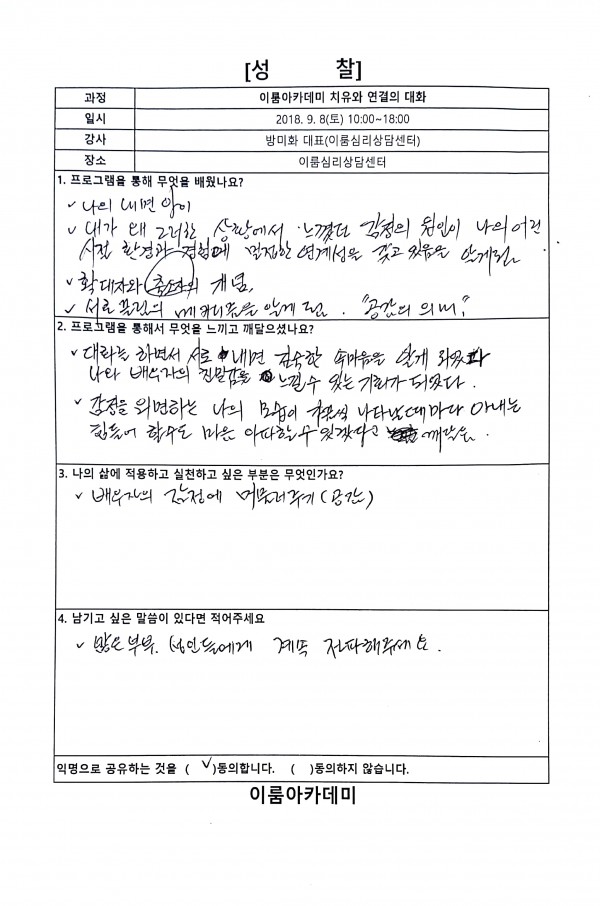 [성 찰]
과정 이룸아카데미 치유와 연결의 대화
일시 2018. 9. 8(토) 10:00~18:00
강사 방미화 대표(이룸심리상담센터)
장소 이룸심리상담센터
1. 프로그램을 통해 무엇을 배웠나요?
✓ 나의 내면 아이
✓ 내가 왜 그러한 상황에서 느꼈던 감정의 원인이 나의 어린
시절 환경과 경험에 밀접한 연계성을 갖고 있음을 알게됨.
✓ 확대자와 축소자의 개념,
✓ 서로 끌림의 메커니즘을 알게 됨. "공간의 의미"
2. 프로그램을 통해서 무엇을 느끼고 깨달으셨나요?
✓ 대화를 하면서 서로 내면 깊숙한 속마음을 알게 되었다
나와 배우자의 친밀감을 느낄수 있는 기회가 되었다.
✓ 감정을 외면하는 나의 모습이 나타날때마다 아내는
힘들어 할수도 마음 아파할수 있겠다고 깨달음.
3. 나의 삶에 적용하고 실천하고 싶은 부분은 무엇인가요?
✓ 배우자의 감정에 머물러주기 (공간)
4. 남기고 싶은 말씀이 있다면 적어주세요
✓ 많은 부부. 성인들에게 계속 전파해주세요.
익명으로 공유하는 것을 ( ✓ )동의합니다. ( )동의하지 않습니다.
이룸아카데미